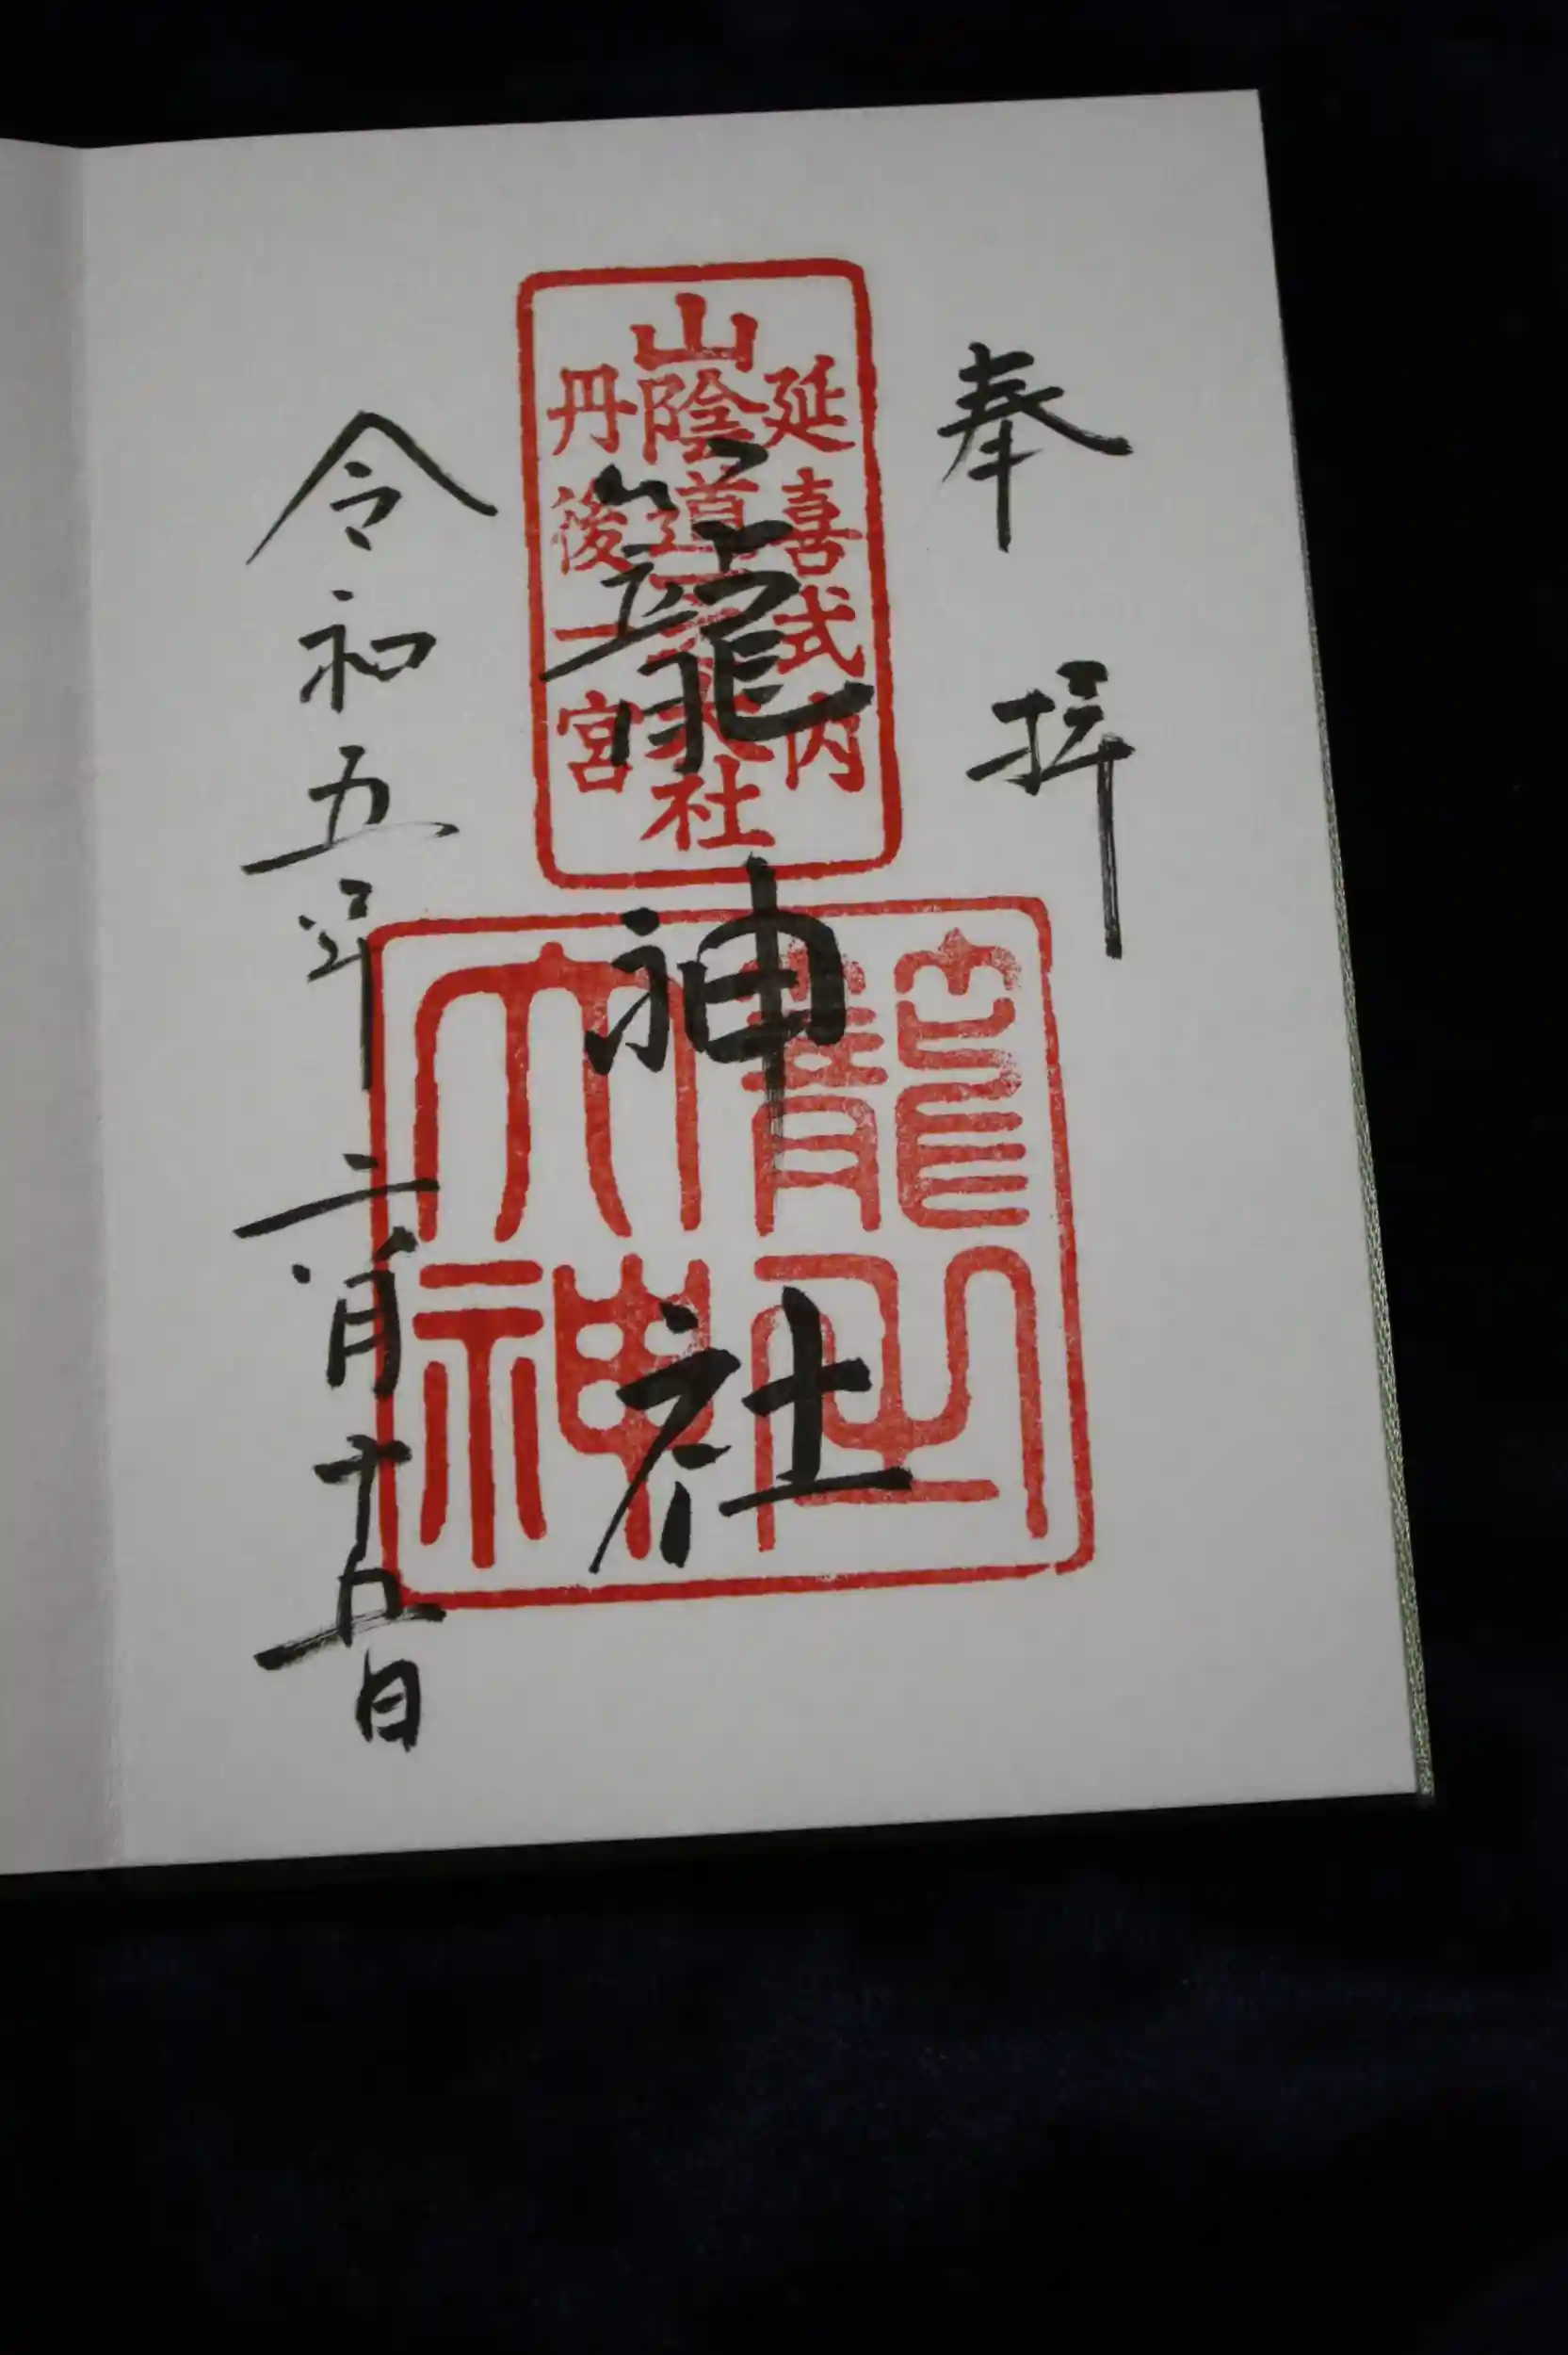 奉拝
延喜式内
山陰道一之大社
丹後一宮
籠神社
籠
大神
令和五年六月十五日